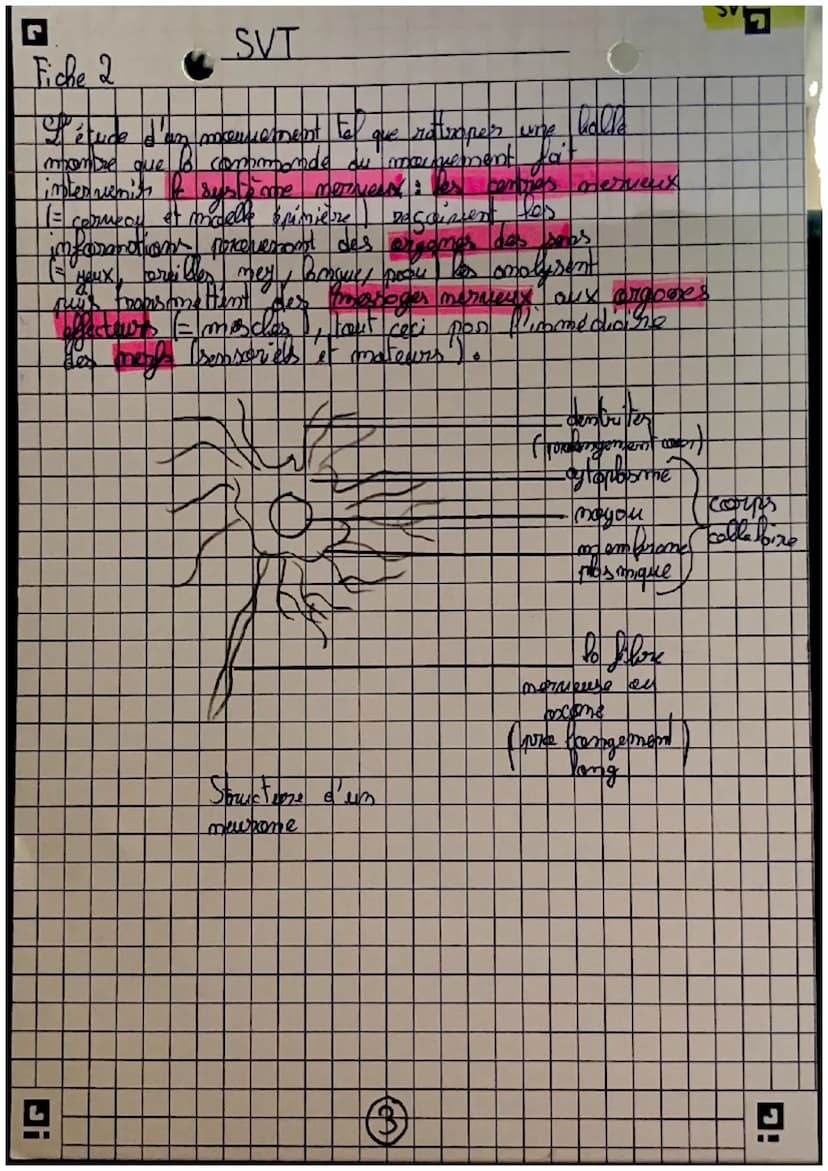 SV
SVT
Fiche 2
L'étude d'un mouvement tel que rattraper une balle
montre que la commande du mouvement fait
intervenir le système nerveux : les centres nerveux
(= cerveau et moelle épinière) reçoivent les
informations provenant des organes des sens
(= yeux, oreilles, nez, langue, peau) les analysent
puis transmettent des messages nerveux aux organes
effecteurs (= muscles), tout ceci par l'immédiaire
des nerfs (sensoriels et moteurs).
dentrites
(prolongement)
cytoplasme
noyau
membrane
plasmique
corps
cellulaire
la fibre
nerveuse ou
axone
(prolongement
long)
Structure d'un
neurone
3